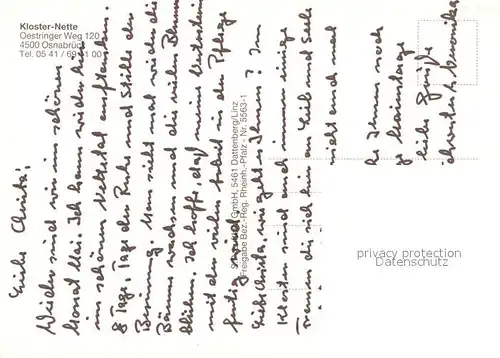 Kloster-Nette
Oestringer Weg 120
4500 Osnabrück
Tel. 05 41 / 69 00
Liebe Christa!
Wieder sind wir im schönen
Monat Mai. Ich kann wieder hier
im schönen Nettetal auftanken.
8 Tage, Tage der Ruhe und Stille der
Besinnung. Man sieht mal wieder die
Bäume wachsen und die vielen Blumen
blühen. Ich hoffe, daß meine
mit der vielen Arbeit in der Pflege
fertig wird.
Liebe Christa, wie geht es Ihnen? Im
Kloster sind auch immer einige
Frauen die sich hier an Leib und Seele
GmbH, 5461 Dattenberg/Linz
Freigabe Bez.-Reg. Rheinh.-Pfalz - Nr. 5563-1
Ihnen noch
liebe Grüße
Schwester M. Veronika
privacy protection
Datenschutz